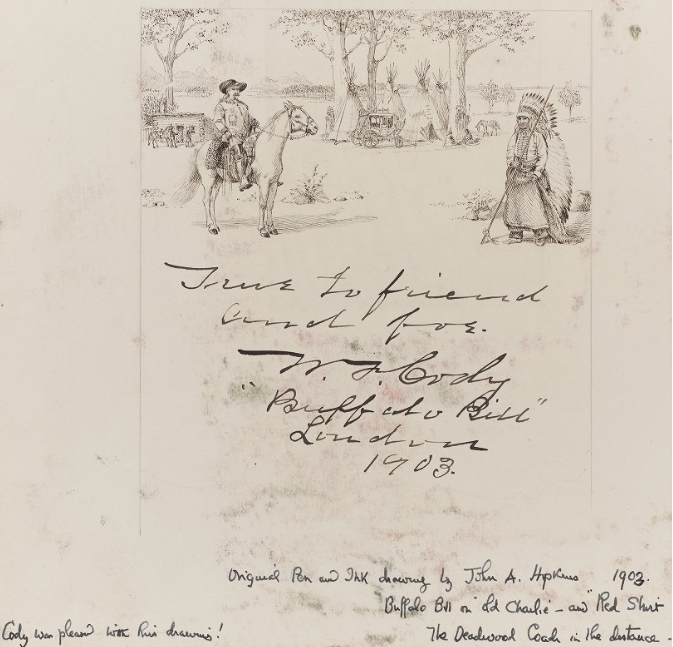 True to friend
and foe.
W. F. Cody
"Buffalo Bill"
London
1903.
Original Pen and Ink drawing by John A. Hopkins 1903.
Buffalo Bill on "Old Charlie" - and "Red Shirt
Cody was pleased with this drawing!
The Deadwood Coach in the distance -